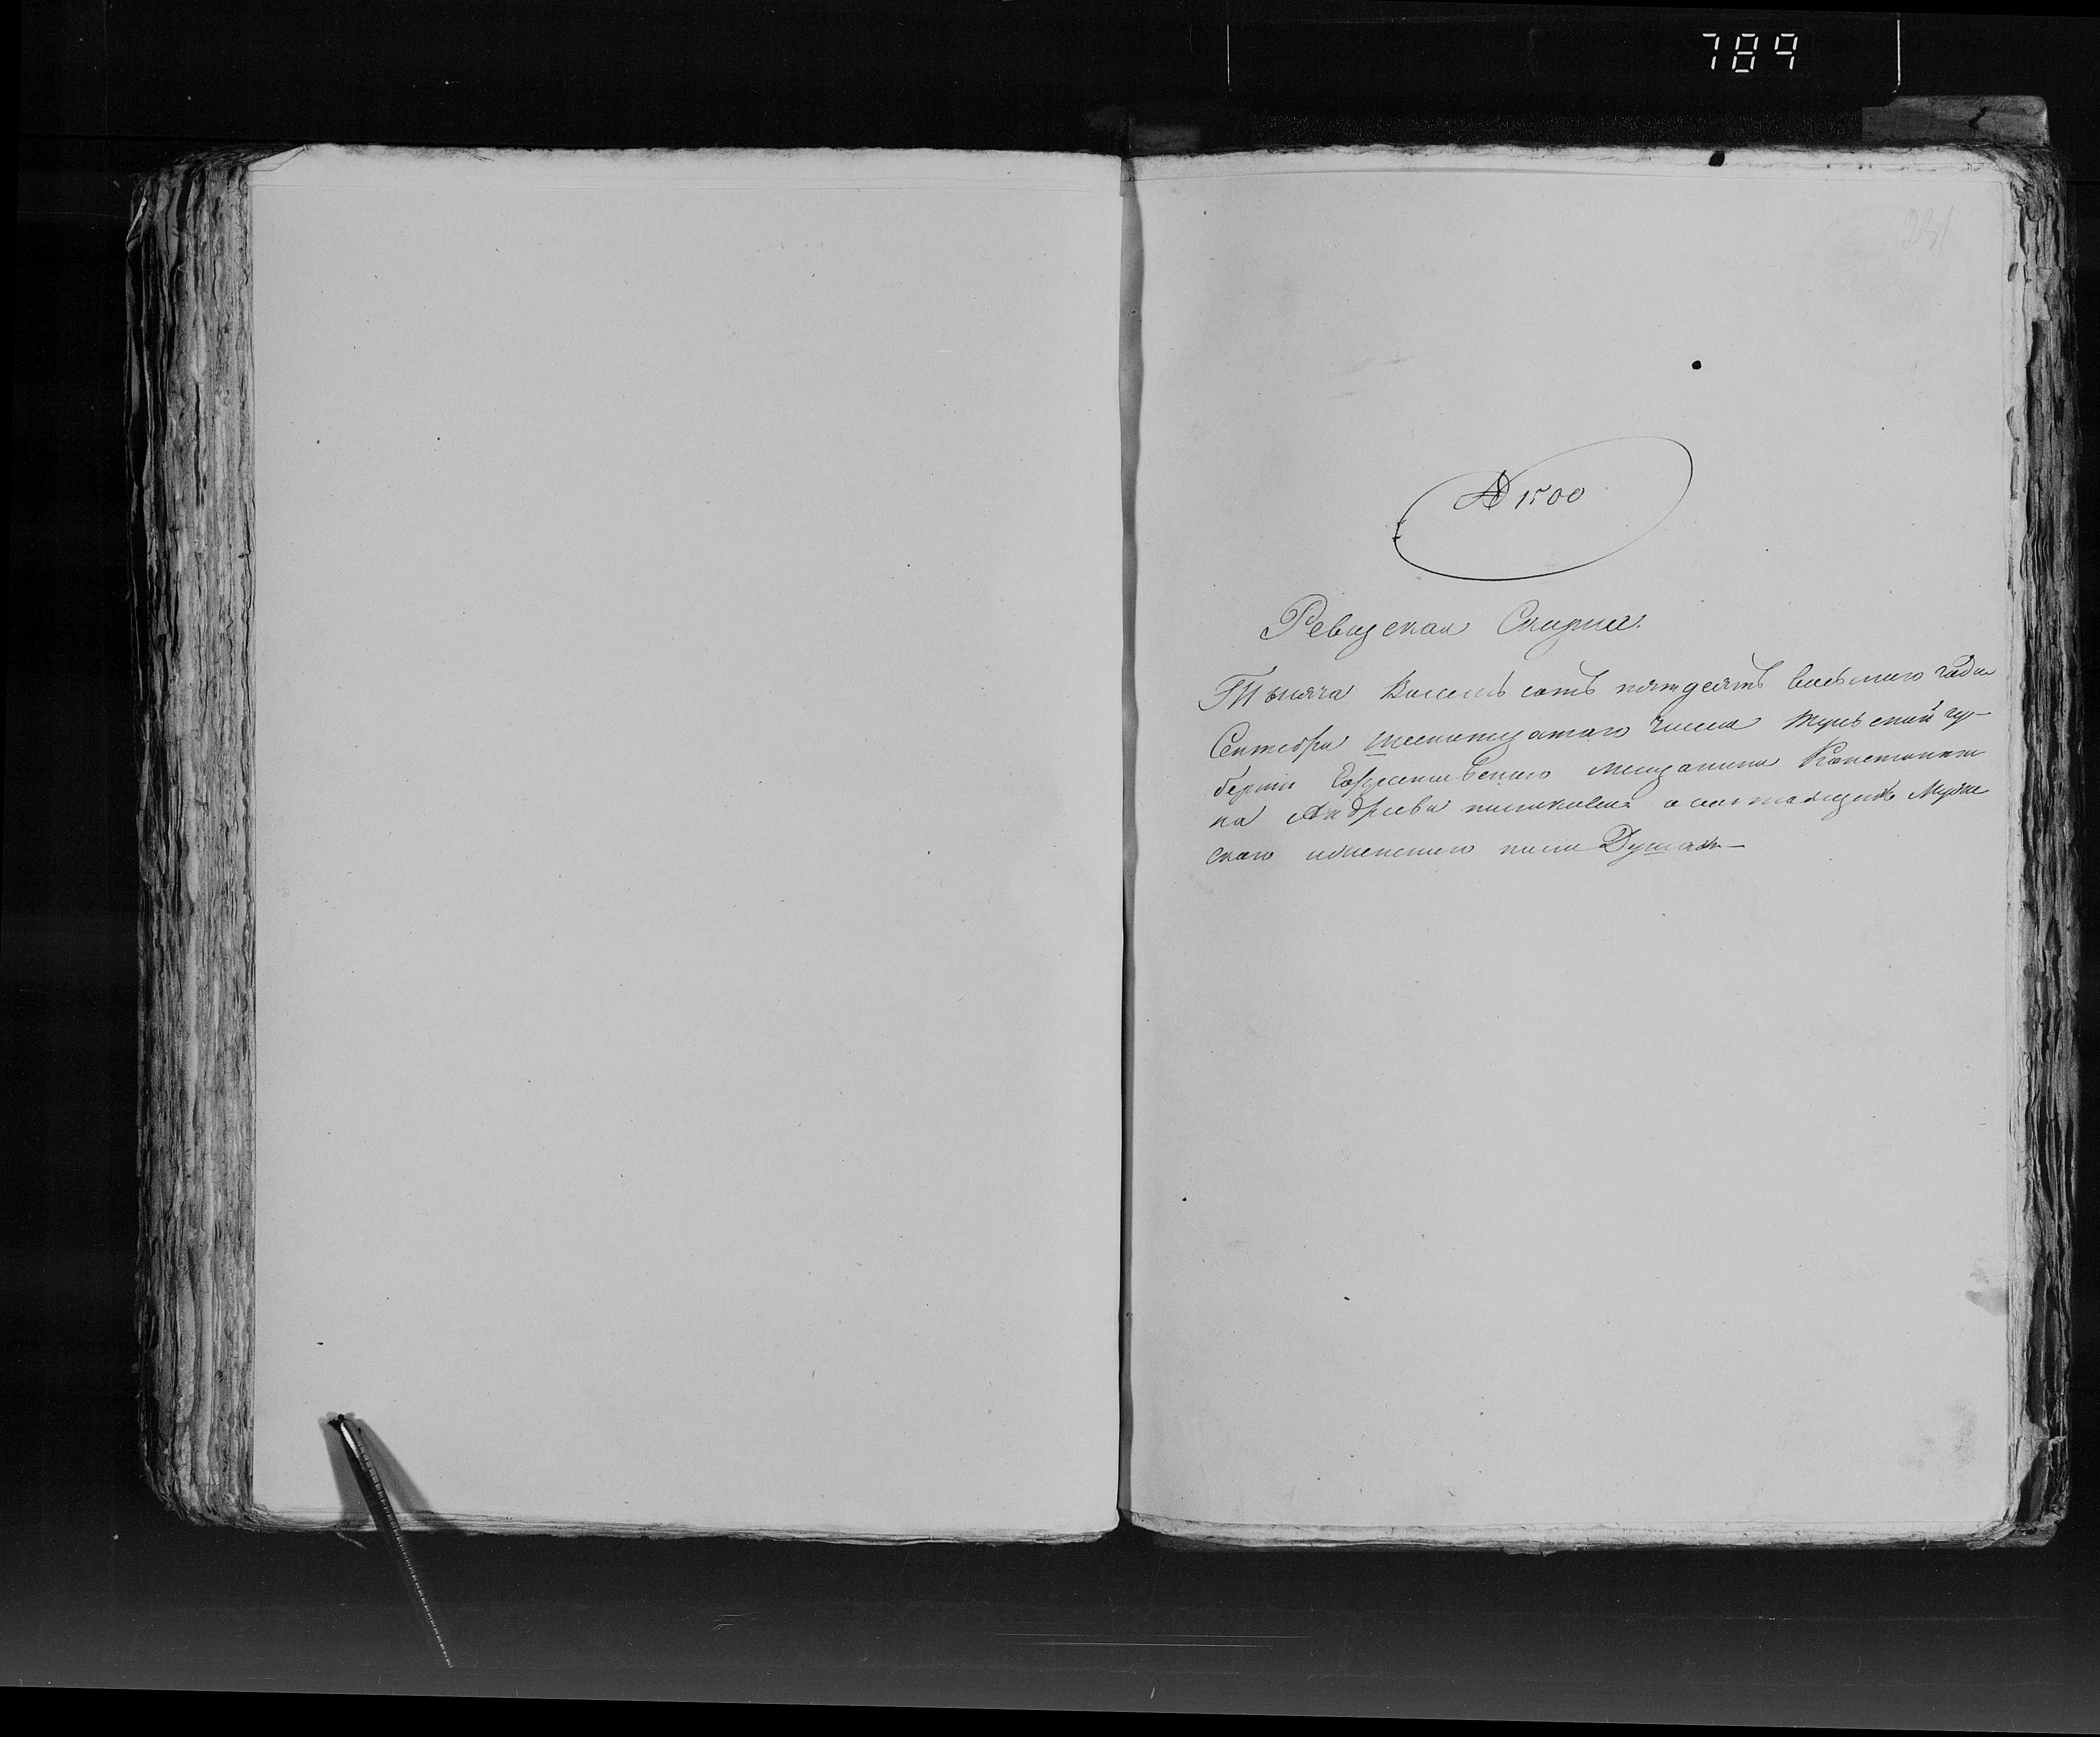 789
231
№ 1500
Ревизская Сказка.
Тысяча Восемь сотъ пятдесятъ восьмаго года
Сентября шестнадцатаго числа Тульской гу-
берніи мещанина Константи
на Андреева о состоящихъ Муже
скаго и женскаго пола Душахъ—